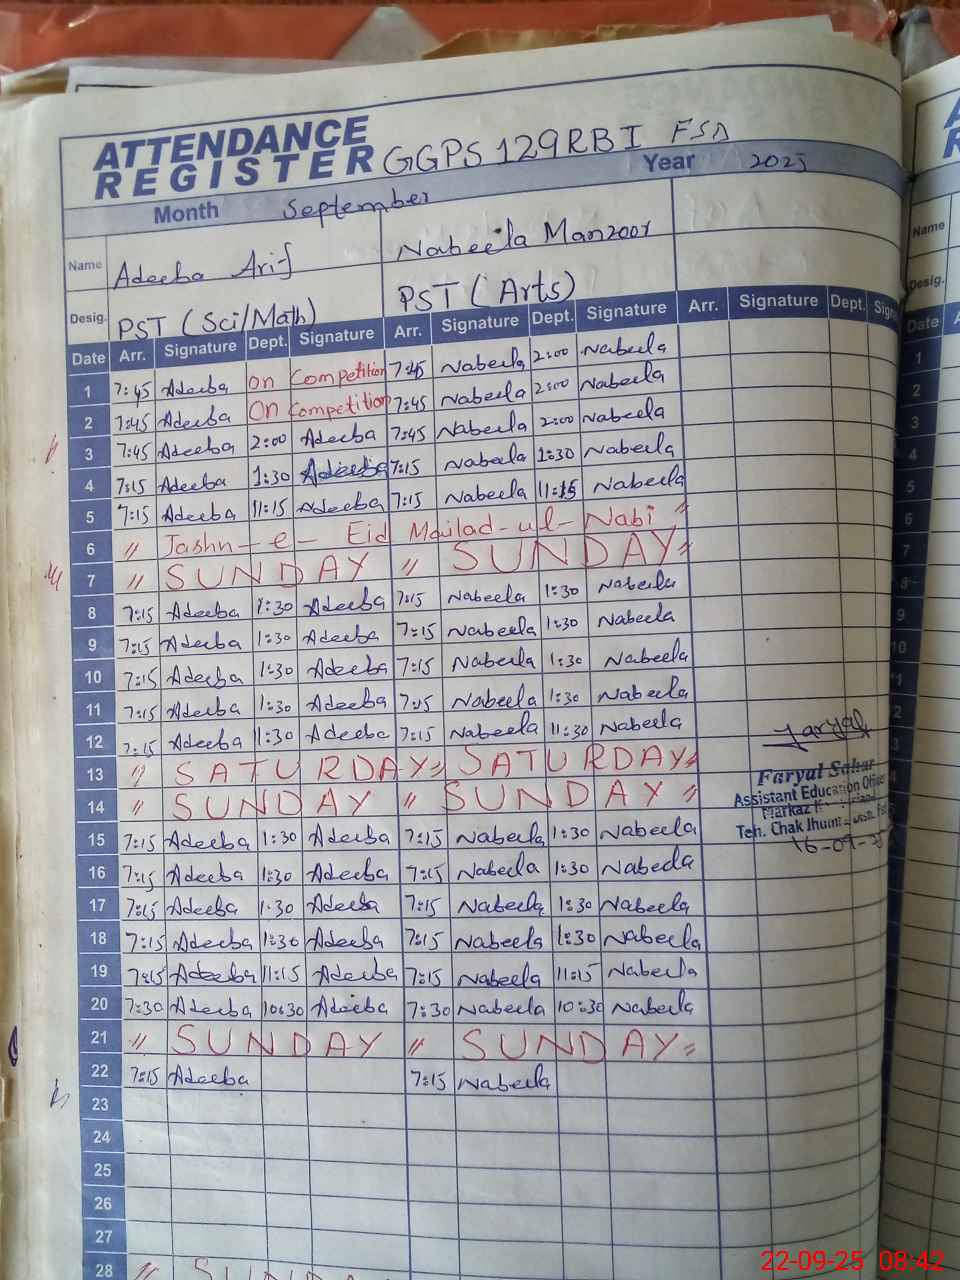 ATTENDANCE
REGISTER GGPS 129RB I FSD
Month September Year 2025
Name Adeeba Arif Nabeela Manzoor
Desig. PST (Sci/Math) PST (Arts)
Date Arr. Signature Dept. Signature Arr. Signature Dept. Signature Arr. Signature Dept. Sign
1 7:45 Adeeba On Competition 7:45 Nabeela 2:00 Nabeela
2 7:45 Adeeba On Competition 7:45 Nabeela 2:00 Nabeela
3 7:45 Adeeba 2:00 Adeeba 7:45 Nabeela 2:00 Nabeela
4 7:15 Adeeba 1:30 Adeeba 7:15 Nabeela 1:30 Nabeela
5 7:15 Adeeba 11:15 Adeeba 7:15 Nabeela 11:15 Nabeela
6 " Jashn-e-Eid Mailad-ul-Nabi "
7 " SUNDAY " SUNDAY "
8 7:15 Adeeba 1:30 Adeeba 7:15 Nabeela 1:30 Nabeela
9 7:15 Adeeba 1:30 Adeeba 7:15 Nabeela 1:30 Nabeela
10 7:15 Adeeba 1:30 Adeeba 7:15 Nabeela 1:30 Nabeela
11 7:15 Adeeba 1:30 Adeeba 7:15 Nabeela 1:30 Nabeela
12 7:15 Adeeba 11:30 Adeeba 7:15 Nabeela 11:30 Nabeela
13 " SATURDAY " SATURDAY "
14 " SUNDAY " SUNDAY "
Faryal Sahar
Assistant Education Officer
Markaz
Teh. Chak Jhumra
16-09-25
15 7:15 Adeeba 1:30 Adeeba 7:15 Nabeela 1:30 Nabeela
16 7:15 Adeeba 1:30 Adeeba 7:15 Nabeela 1:30 Nabeela
17 7:15 Adeeba 1:30 Adeeba 7:15 Nabeela 1:30 Nabeela
18 7:15 Adeeba 1:30 Adeeba 7:15 Nabeela 1:30 Nabeela
19 7:15 Adeeba 11:15 Adeeba 7:15 Nabeela 11:15 Nabeela
20 7:30 Adeeba 10:30 Adeeba 7:30 Nabeela 10:30 Nabeela
21 " SUNDAY " SUNDAY "
22 7:15 Adeeba 7:15 Nabeela
23
24
25
26
27
28 " SUNDAY
Name
Desig.
Date
1
2
3
4
5
6
7
8
9
10
11
22-09-25 08:42